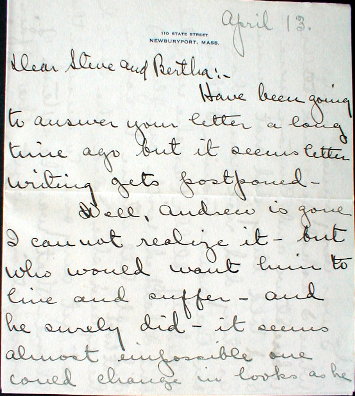 April 13.
110 STATE STREET
NEWBURYPORT, MASS.
Dear Steve and Bertha:-
Have been going
to answer your letter a long
time ago but it seems letter
writing gets postponed -
Well, Andrew is gone
I can not realize it - but
who would want him to
live and suffer - and
he surely did - it seems
almost impossible one
could change in looks as he